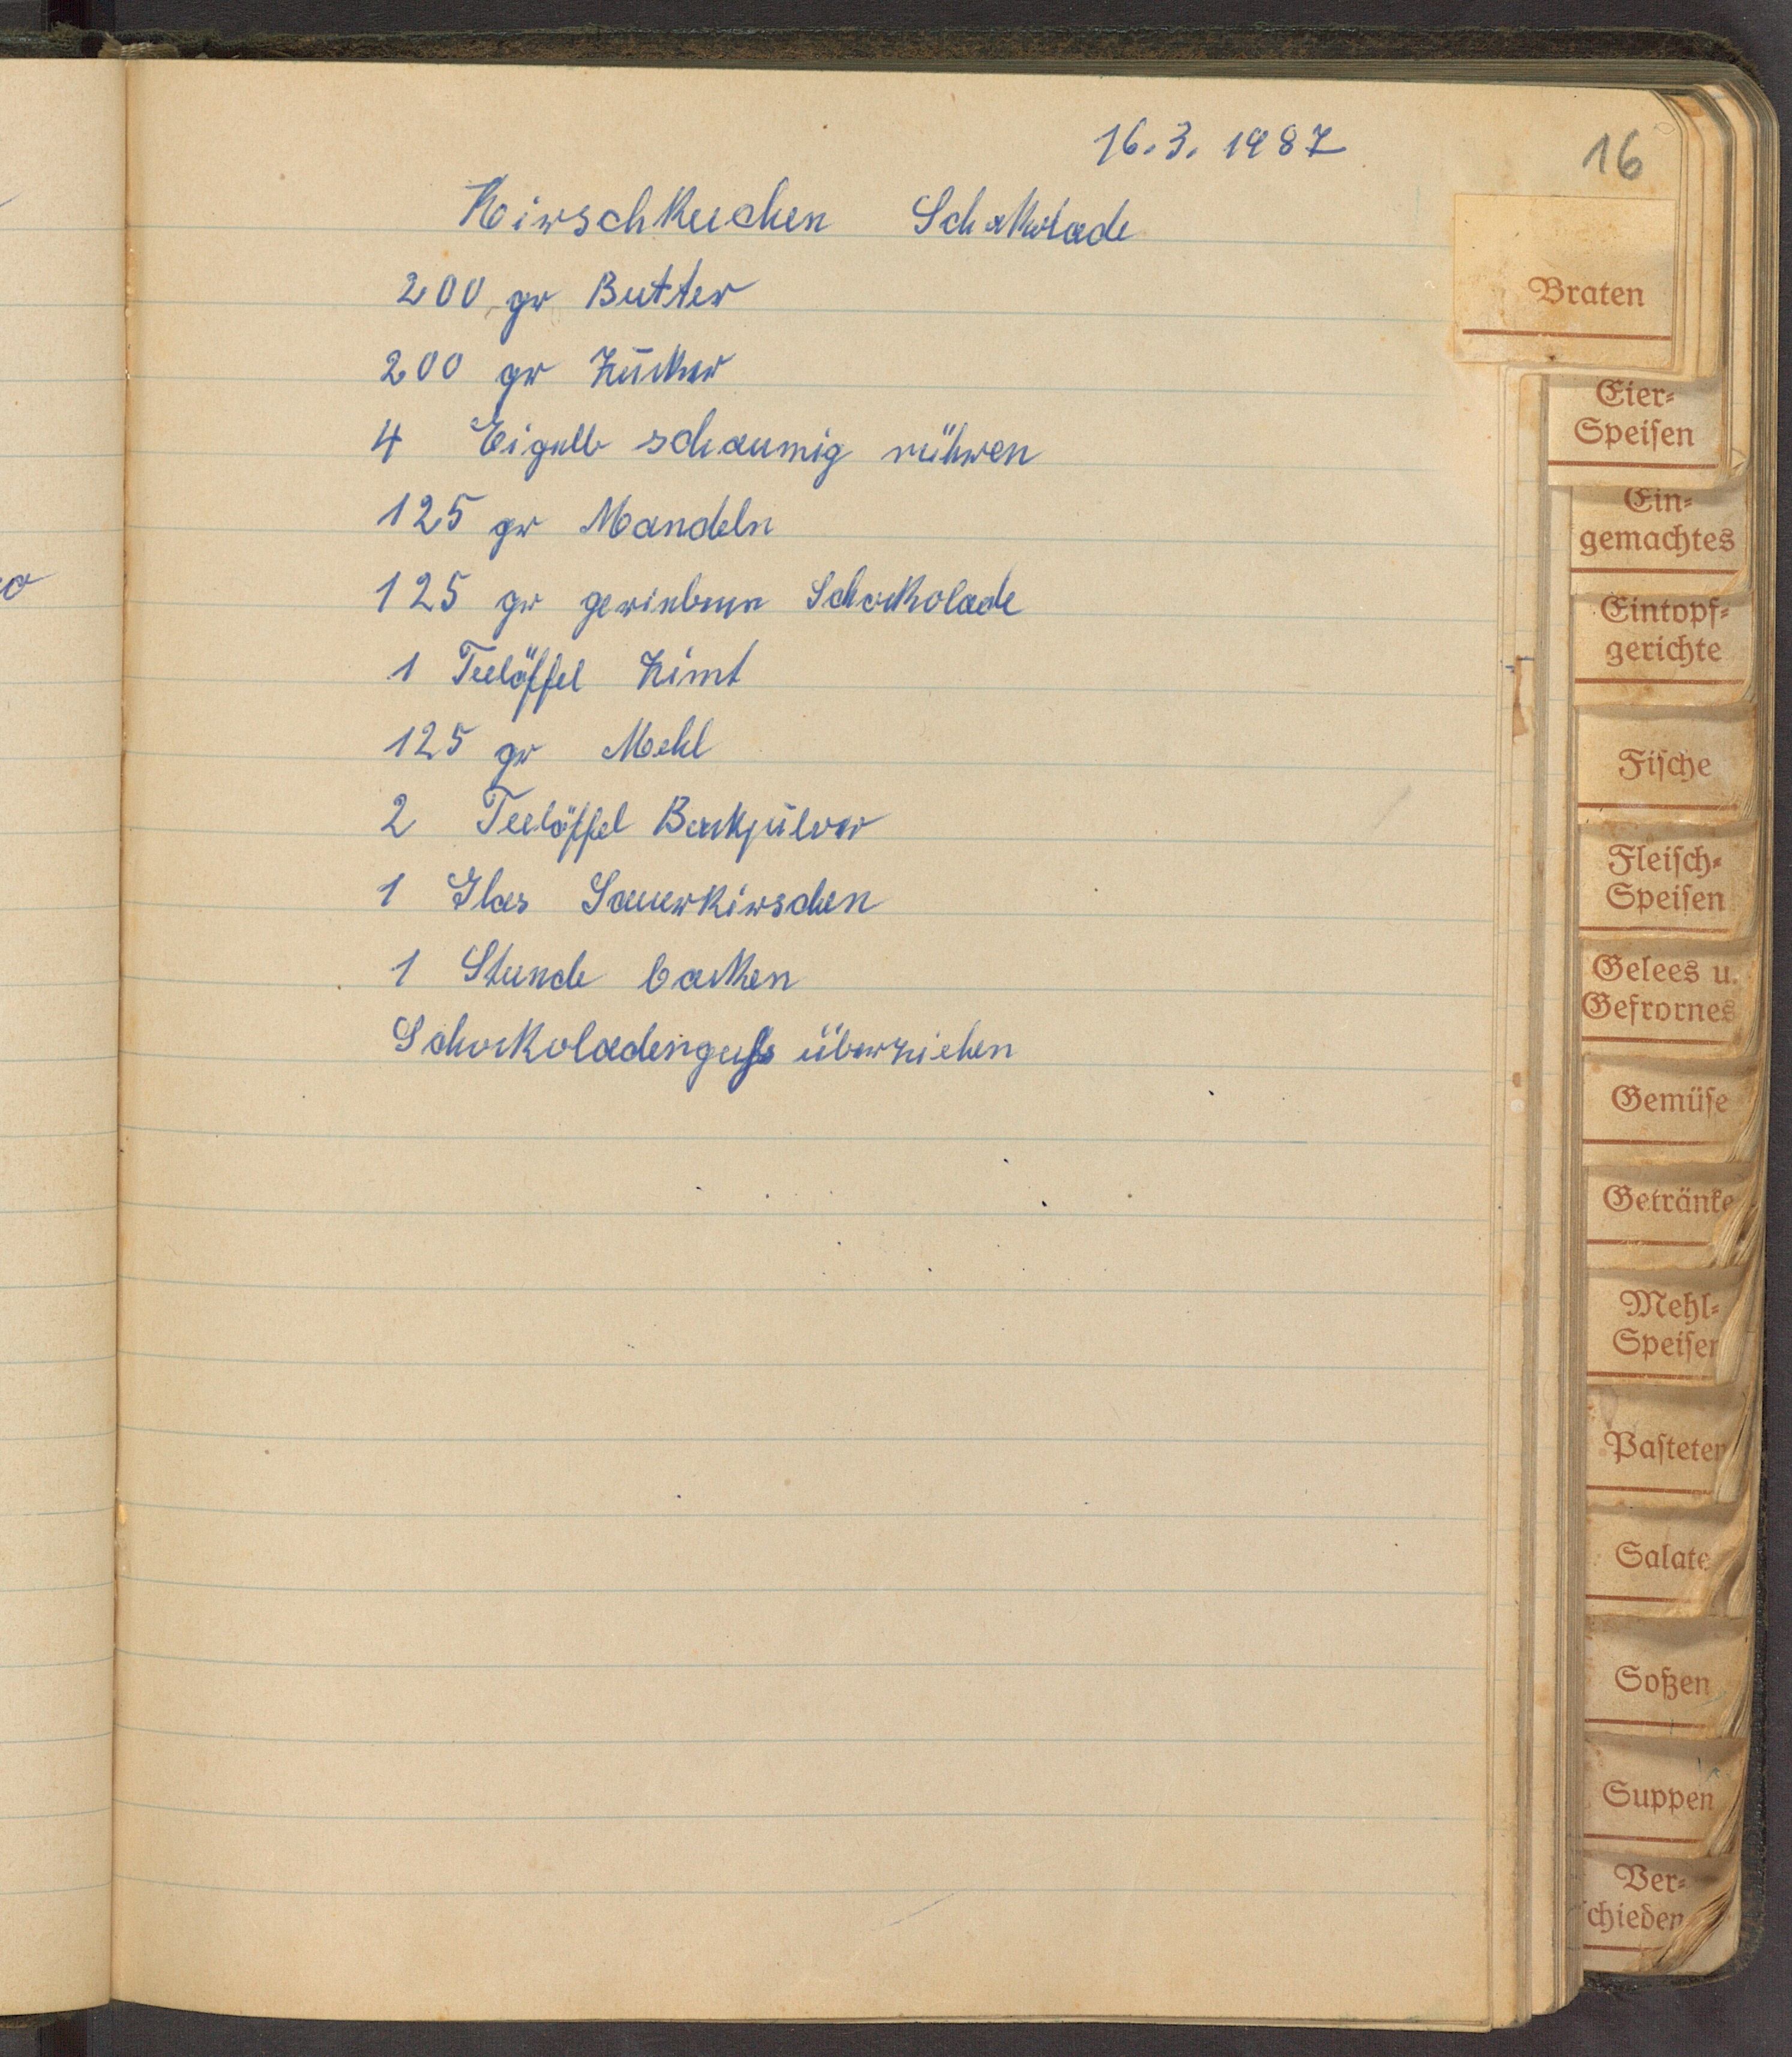 16.3.1987
16
Kirschkuchen Schokolade
200 gr Butter
200 gr Zucker
4 Eigelb schaumig rühren
125 gr Mandeln
125 gr geriebenen Schockolade
1 Teelöffel Zimt
125 gr Mehl
2 Teelöffel Backpulver
1 Glas Sauerkirschen
1 Stunde backen
Schockoladenguß überziehen
Braten
Eier-
Speisen
Ein-
gemachtes
Eintopf-
gerichte
Fische
Fleisch-
Speisen
Gelees u.
Gefrornes
Gemüse
Getränke
Mehl-
Speisen
Pasteten
Salate
Soßen
Suppen
Ver-
schieden